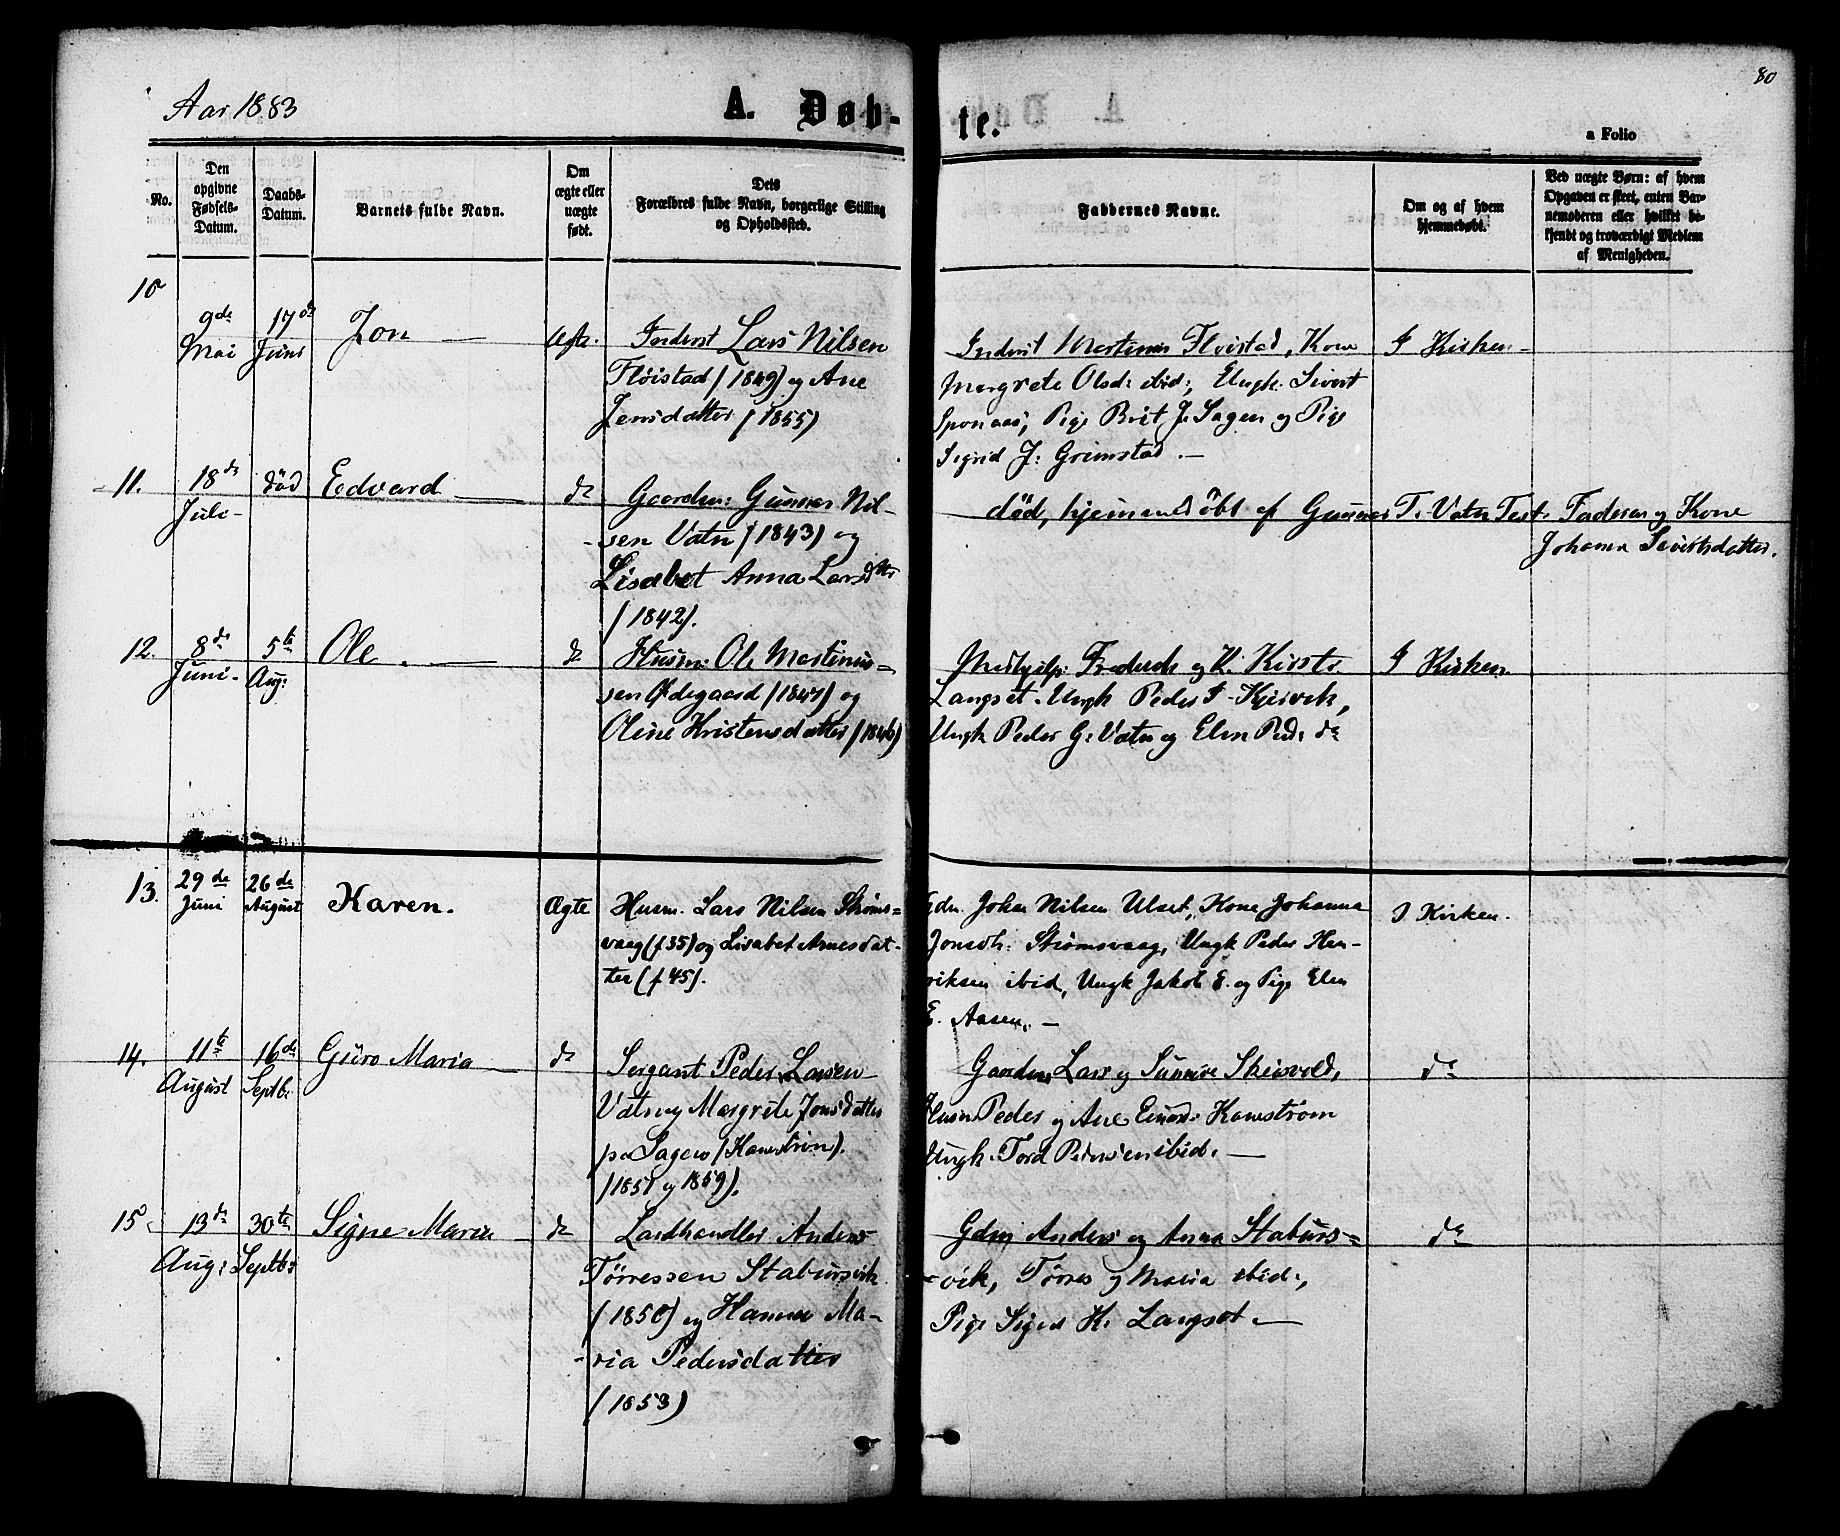 80
Aar 1883
A. Døb-
te.
a Folio
No.
Den
opgivne
Fødsels-
Datum.
Daabs-
Datum.
Barnets fulde Navn.
Om
ægte eller
uægte
født.
Dets
Forældres fulde Navn, borgerlige Stilling
og Opholdssted.
Faddernes Navne.
Om og af hvem
hjemmedøbt.
Ved uægte Børn: af hvem
Opgaven er skeet, enten Bar-
nemoderen eller hvilket be-
kjendt og troværdigt Medlem
af Menigheden.
10
9de
Mai
17de
Juni
Jon
Ægte.
Inderst Lars Nilsen
Fløistad (1849) og Ane
Jensdatter (1855)
Inderst Martinus Fløistad, Kone
Margrete Olsd: ibid:, Ungk: Sivert
Sponaas, Pige Brit J. Sagen og Pige
Sigrid J: Grimstad.
I Kirken
11.
18de
Juli
død
Edvard
do
Gaardm: Gunnar Nil-
sen Vatn (1843) og
Lisabet Anna Larsdtr
(1842).
død, hjemmedøbt af Gunnar T. Vatn Test. Faderen og Kone
Johanna Sivertsdatter.
12.
8de
Juni
5te
Aug:
Ole
do
Husm: Ole Martinus-
sen Ødegaard (1847) og
Oline Kristensdatter (1846)
Medhjelp: Frederik og K. Kirsti
Langset. Ungk Peder I. Kjersvik,
Ungk Peder G: Vatn og Elen Ped: do
I Kirken
13.
29de
Juni
26de
August
Karen.
Ægte
Husm. Lars Nilsen Strøms-
vaag (f 35) og Lisabet Arnesdat-
ter (f 45).
Gdm. Johan Nilsen Ulset, Kone Johanna
Jonsdtr: Strømsvaag, Ungk Peder Hen-
riksen ibid, Ungk Jakob E. og Pige Elen
E. Aasen.
I Kirken.
14.
11te
August
16de
Septb.
Guro Maria
do
Sergant Peder Larsen
Vatn og Margrete Jonsdatter
pa Sagen (Kanestrøm).
(1857 og 1859).
Gaardm. Lars og Sunneve Skeisvold,
Husm Peder og Ane Einard: Kanestrøm
Ungk. Tord Pedersen ibid.
do
15
13de
Aug:
30te
Septb:
Signe Maria
do
Landhandler Anders
Tørressen Stabursvik
(1850) og Hanna Ma-
ria Pedersdatter
(1853)
Gdm Anders og Anna Staburs-
vik, Tørres og Maria ibid:,
Pige Sigrid K. Langset
do